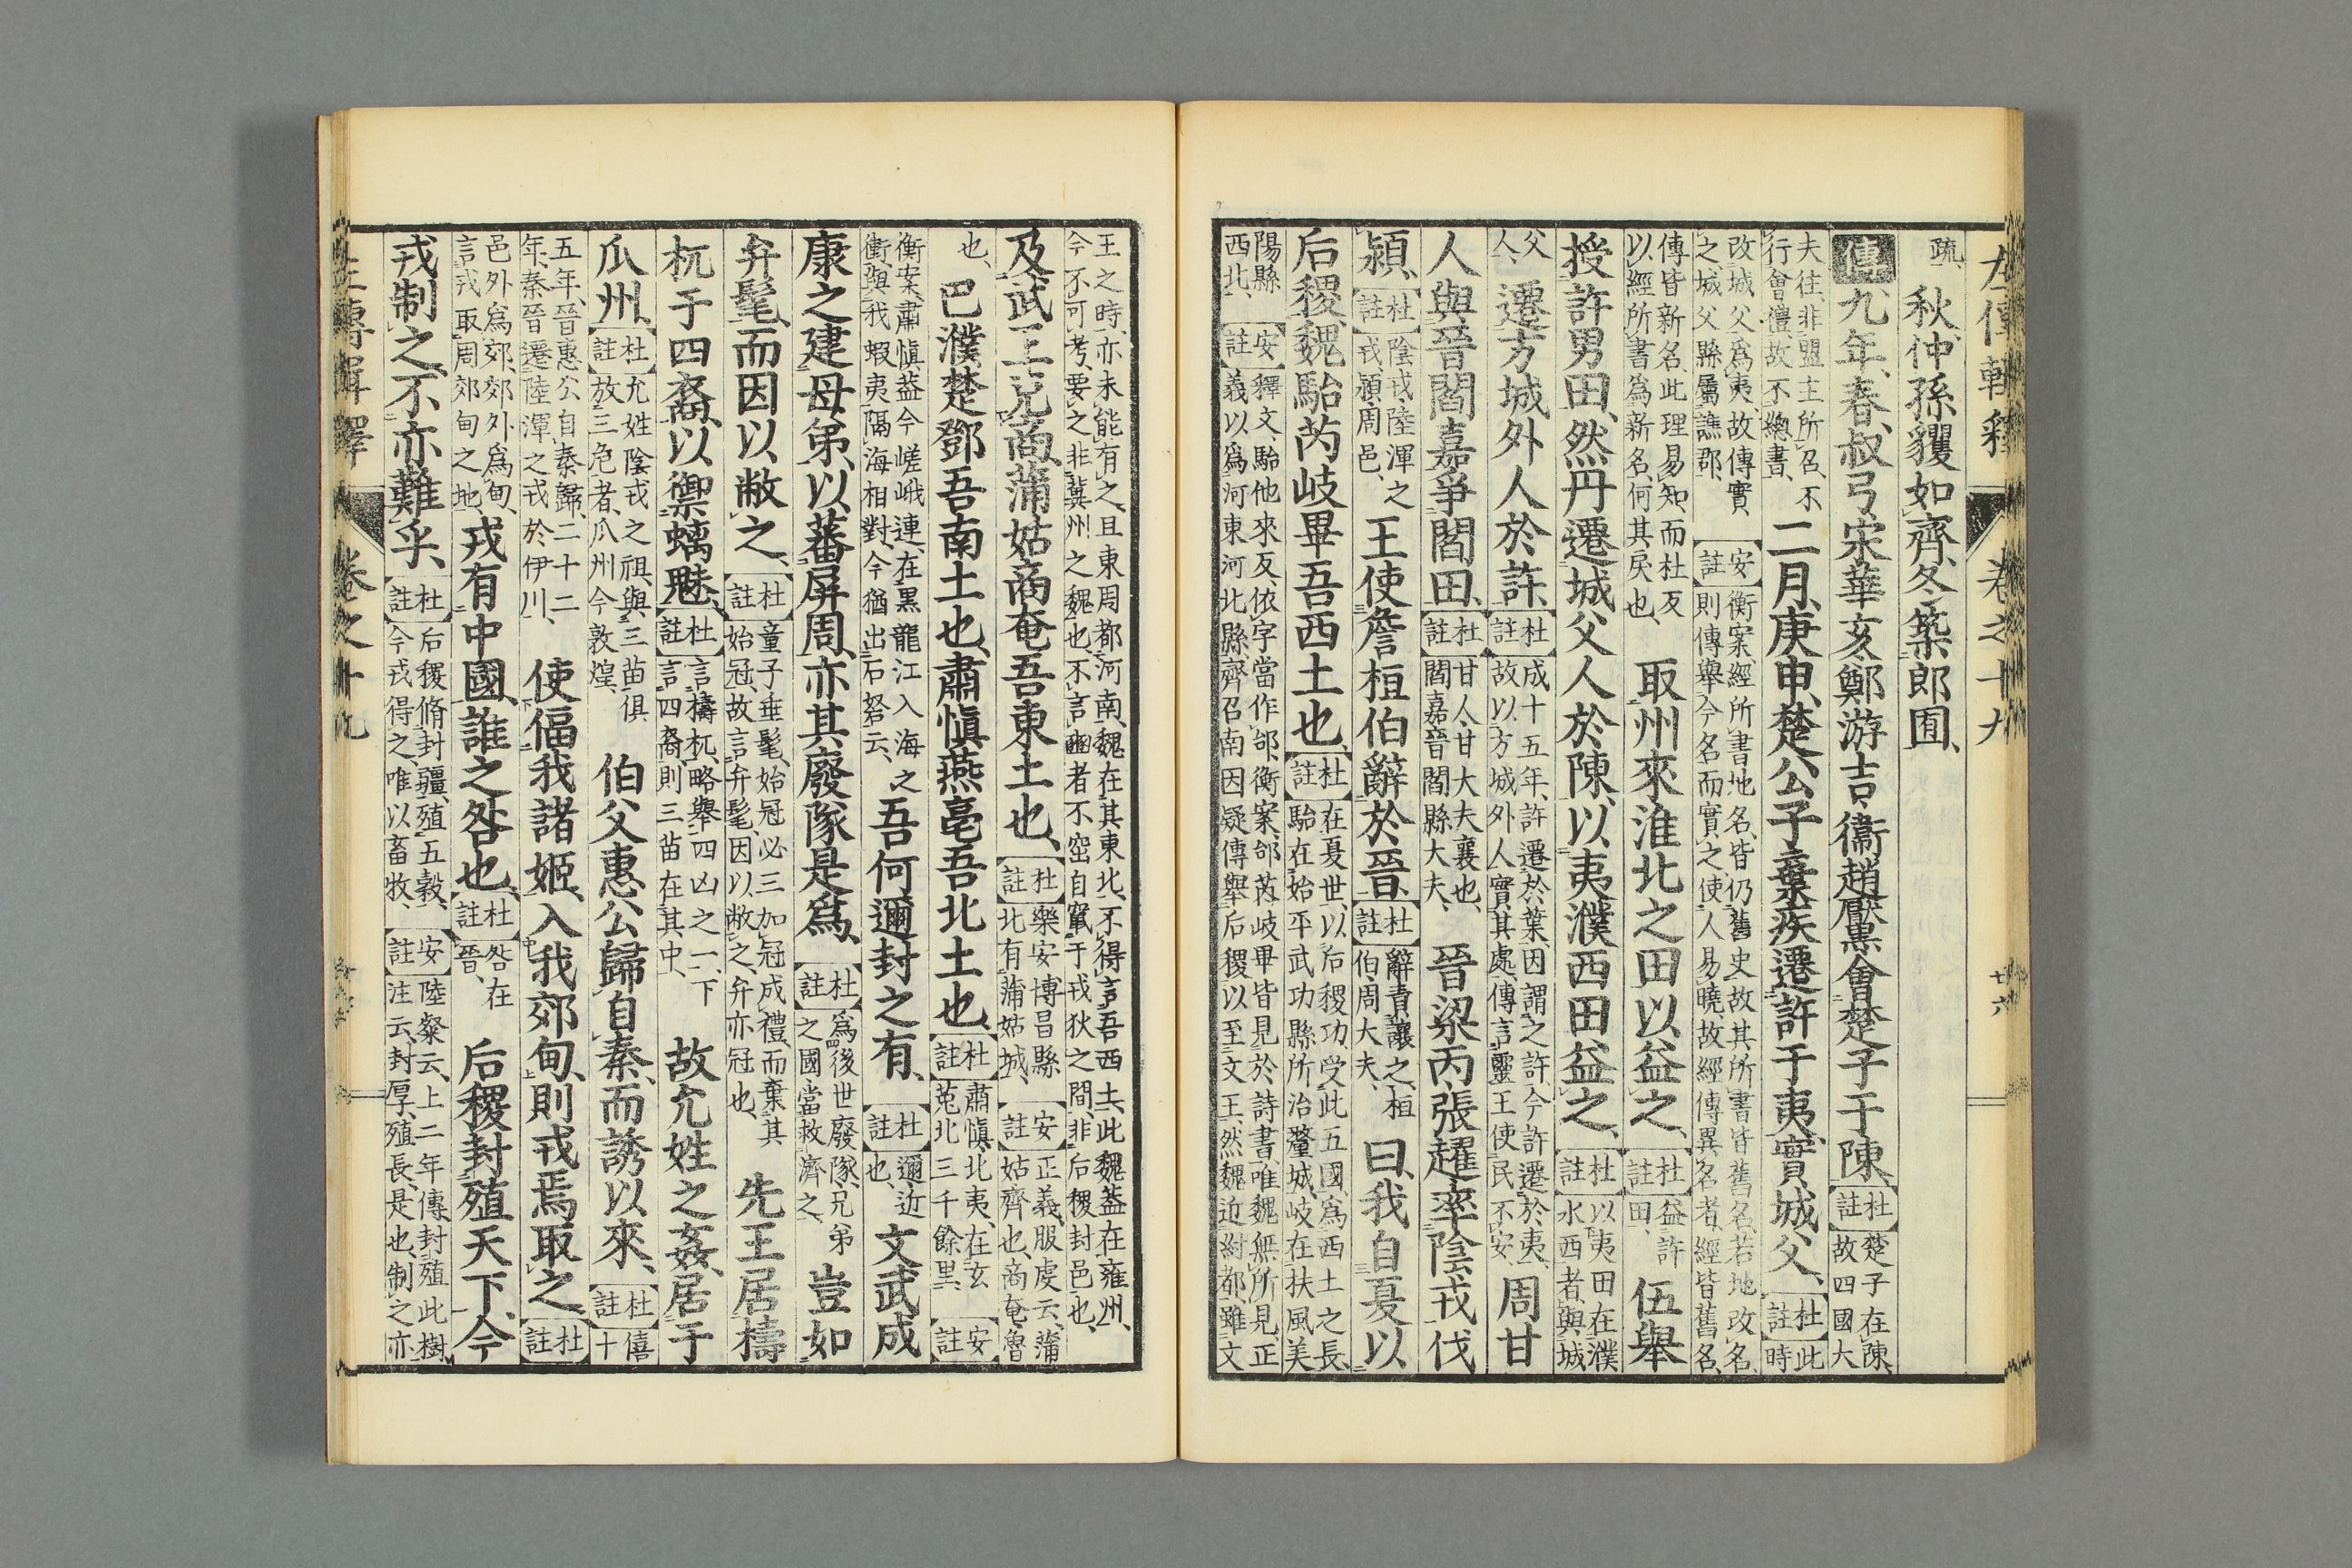 左傳輯釋 卷之十九 廿六
疏、 秋、仲孫貜如齊、冬、築郎囿、
傳 九年、春、叔弓、宋華亥、鄭游吉、衞趙黶、會楚子于陳、 杜註 楚子在陳、故四國大
夫往、非盟主所召、不行會禮、故不總書、 二月、庚申、楚公子棄疾遷許于夷、實城父、 杜註 此時
改城父爲夷、故傳實之、城父縣屬譙郡、 安註 衡案、經所書地名、皆仍舊史、故其所書皆舊名、若地改名、則傳舉今名而實之、使人易曉、故經傳異名者、經皆舊名、
傳皆新名、此理易知、而杜反以經所書爲新名、何其戾也、 取州來淮北之田以益之、 杜註 益許田、 伍舉
授許男田、然丹遷城父人於陳、以夷濮西田益之、 杜註 以夷田在濮水西者、與城
父人、 遷方城外人於許、 杜註 成十五年、許遷於葉、因謂之許、今許遷於夷、故以方城外人實其處、傳言靈王使民不安、 周甘
人與晉閻嘉爭閻田、 杜註 甘人、甘大夫襄也、閻嘉、晉閻縣大夫、 晉梁丙張趯、率陰戎伐
潁、 杜註 陰戎、陸渾之戎、潁、周邑、 王使詹桓伯辭於晉、 杜註 辭、責讓之、桓伯、周大夫、 曰、我自夏以
后稷、魏駘芮岐畢、吾西土也、 杜註 在夏世、以后稷功、受此五國、爲西土之長、駘在始平武功縣所治釐城、岐在扶風美
陽縣西北、 安註 釋文、駘他來反、依字當作邰、衡案、邰芮岐畢、皆見於詩書、唯魏無所見、正義以爲河東河北縣、齊召南因疑傳舉后稷以至文王、然魏近紂都、雖文
王之時、亦未能有之、且東周都河南、魏在其東北、不得言吾西土、此魏葢在雍州、今不可考、要之非冀州之魏也、不言豳者、不窋自竄于戎狄之間、非后稷封邑也、
及武王克商、蒲姑商奄、吾東土也、 杜註 樂安博昌縣北有蒲姑城、 安註 正義、服虔云、蒲姑齊也、商奄、魯
也、 巴濮楚鄧、吾南土也、肅愼燕亳、吾北土也、 杜註 肅愼、北夷、在玄菟北三千餘里、 安註
衡案、肅愼葢今嵯峨連、在黑龍江入海之衝、與我蝦夷隔海相對、今猶出石砮云、 吾何邇封之有、 杜註 邇、近也、 文武成
康之建母弟、以蕃屏周、亦其廢隊是爲、 杜註 爲後世廢隊、兄弟之國、當救濟之、 豈如
弁髦、而因以敝之、 杜註 童子垂髦、始冠必三加冠、成禮而棄其始冠、故言弁髦、因以敝之、弁亦冠也、 先王居檮
杌于四裔、以禦螭魅、 杜註 言檮杌、略舉四凶之一、下言四裔、則三苗在其中、 故允姓之姦、居于
瓜州、 杜註 允姓陰戎之祖、與三苗俱放三危者、瓜州今敦煌、 伯父惠公歸自秦、而誘以來、 杜註 僖十
五年、晉惠公自秦歸、二十二年、秦晉遷陸渾之戎於伊川、 使偪我諸姬、入我郊甸、則戎焉取之、 杜註
邑外爲郊、郊外爲甸、言戎取周郊甸之地、 戎有中國、誰之咎也、 杜註 咎在晉、 后稷封殖天下、今
戎制之、不亦難乎、 杜註 后稷脩封疆、殖五穀、今戎得之、唯以畜牧、 安註 陸粲云、上二年傳封殖此樹、注云、封厚、殖長、是也、制之亦
左傳輯釋 卷之十九